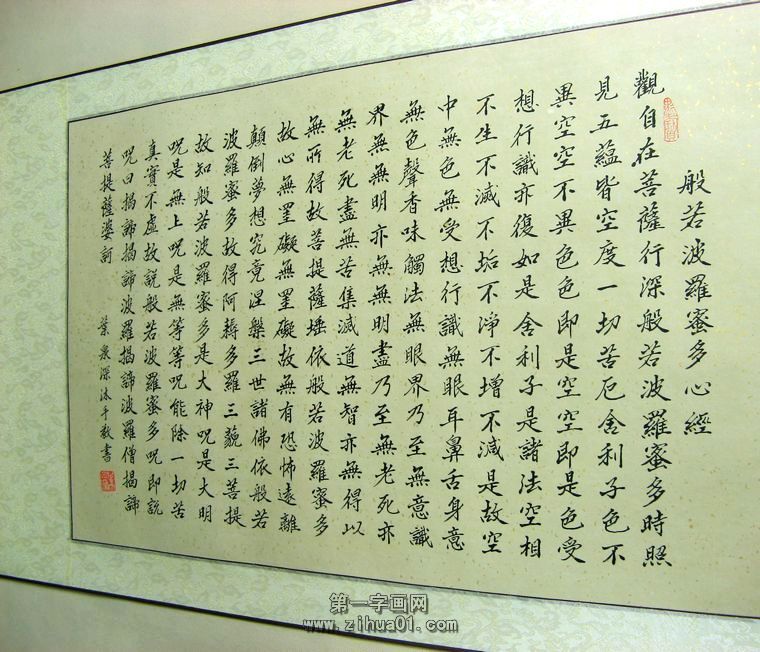 般若波羅蜜多心經
觀自在菩薩行深般若波羅蜜多時照
見五蘊皆空度一切苦厄舍利子色不
異空空不異色色即是空空即是色受
想行識亦復如是舍利子是諸法空相
不生不滅不垢不淨不增不減是故空
中無色無受想行識無眼耳鼻舌身意
無色聲香味觸法無眼界乃至無意識
界無無明亦無無明盡乃至無老死亦
無老死盡無苦集滅道無智亦無得以
無所得故菩提薩埵依般若波羅蜜多
故心無罣礙無罣礙故無有恐怖遠離
顛倒夢想究竟涅槃三世諸佛依般若
波羅蜜多故得阿耨多羅三藐三菩提
故知般若波羅蜜多是大神咒是大明
咒是無上咒是無等等咒能除一切苦
真實不虛故說般若波羅蜜多咒即說
咒曰揭諦揭諦波羅揭諦波羅僧揭諦
菩提薩婆訶
葉泉深沐手敬書
第一字画网
www.zihua01.com